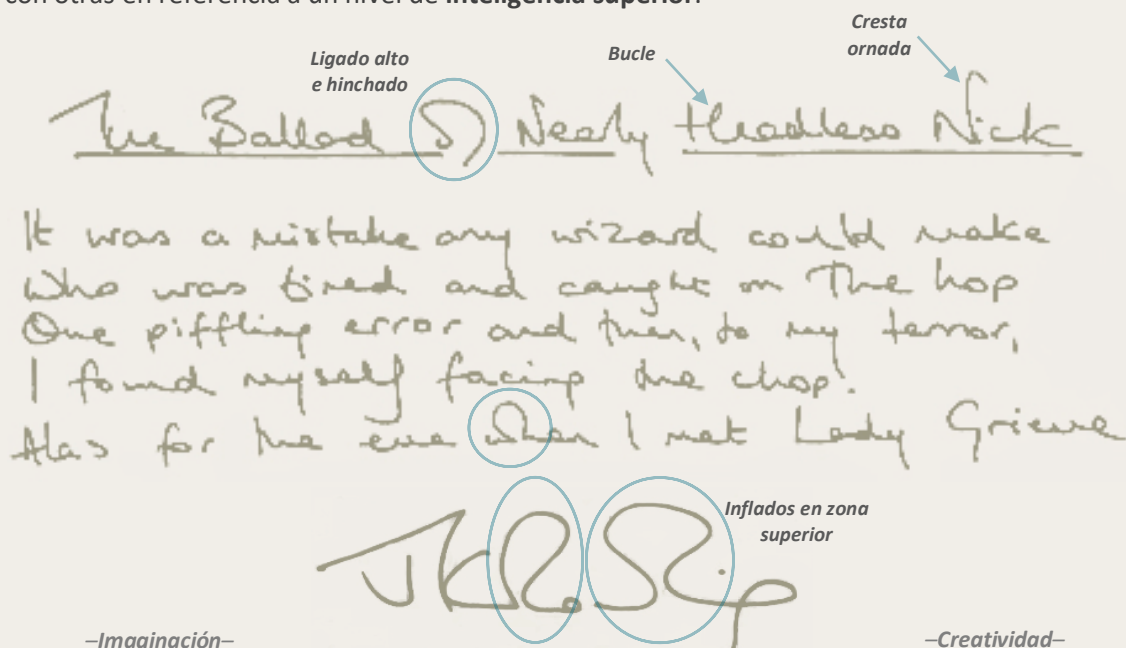 con otras en referencia a un nivel de inteligencia superior.
Cresta
ornada
Ligado alto
e hinchado
Bucle
The Ballad of Nearly Headless Nick
It was a mistake any wizard could make
Who was tired and caught on The hop
One piffling error and then, to my terror,
I found myself facing the chop.
Alas for the eve when I met Lady Grieve
Inflados en zona
superior
JKRowling
–Imaginación–
–Creatividad–